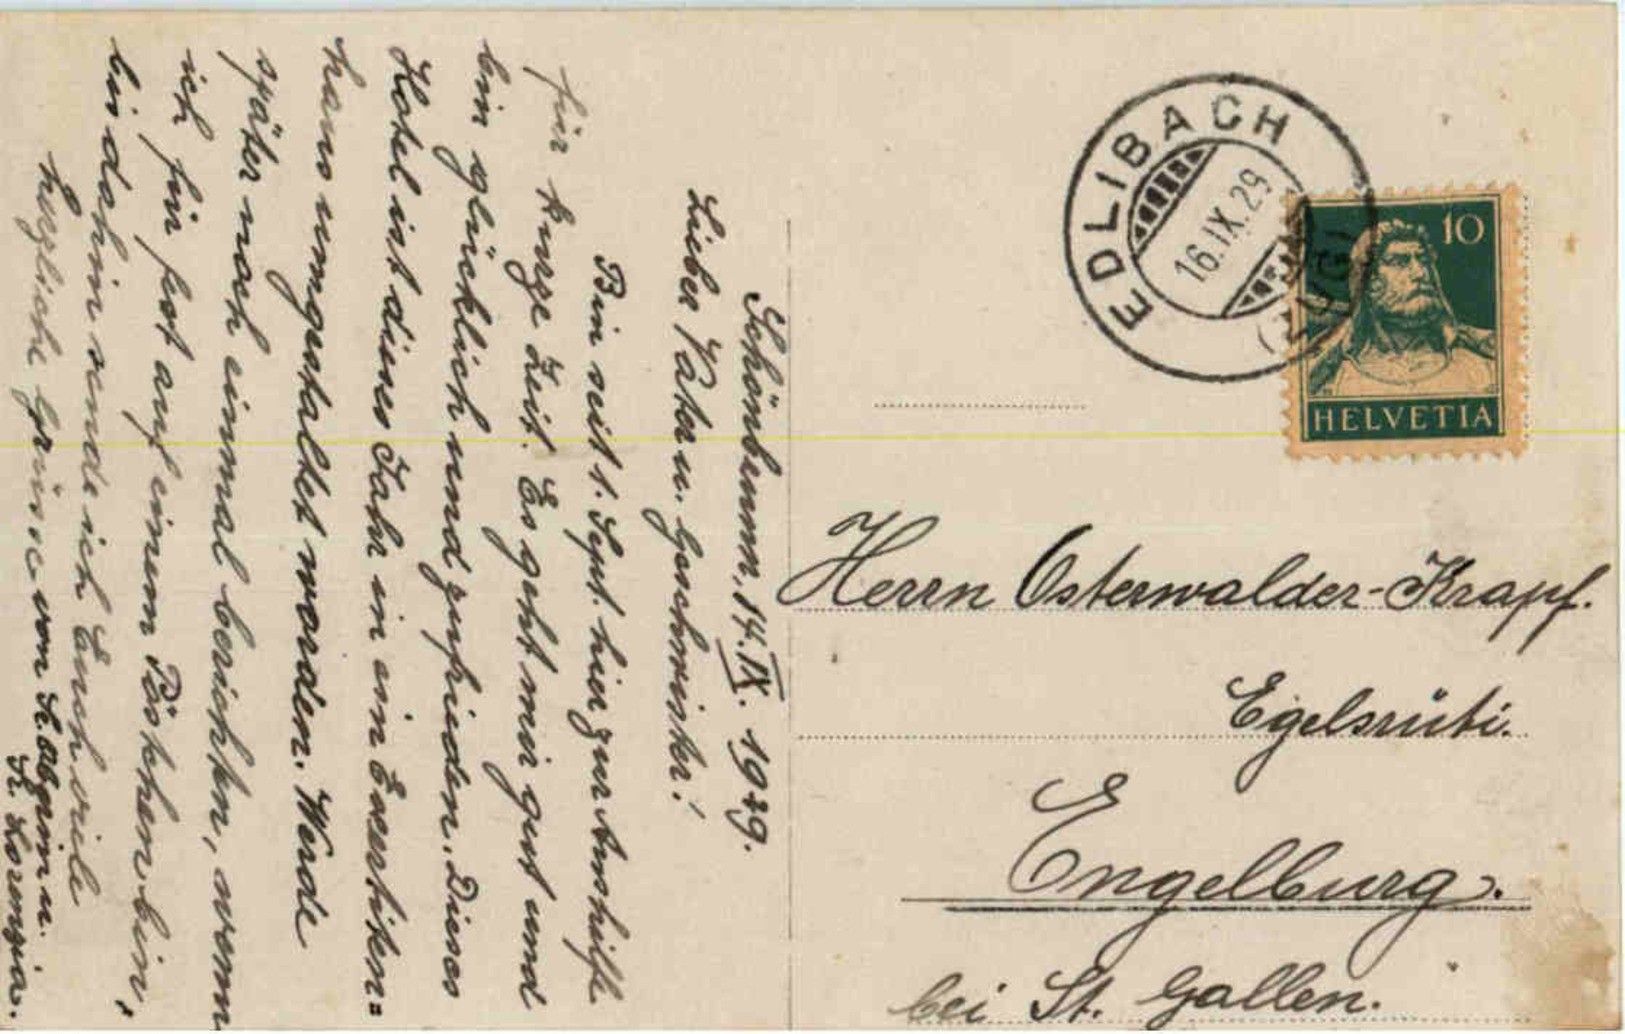 Schönbrunn, 14. IX. 1929.
Lieber Vater u. Geschwister!
Bin seit 1. Sept. hier zur Aushilfe
für kurze Zeit. Es geht mir gut und
bin glücklich und zufrieden. Dieses
Hotel ist dieses Jahr in ein Exerzitien=
haus umgestaltet worden. Werde
später noch einmal berichten, wenn
ich fix fest auf einem Pöstchen bin,
bis dahin sende ich Euch viele
herzliche Grüsse von
Sr. Lorenzia.
EDLIBACH
(ZUG)
16.IX.29
10
HELVETIA
Herrn Osterwalder-Krapf.
Egelsrüti.
Engelburg.
bei St. Gallen.